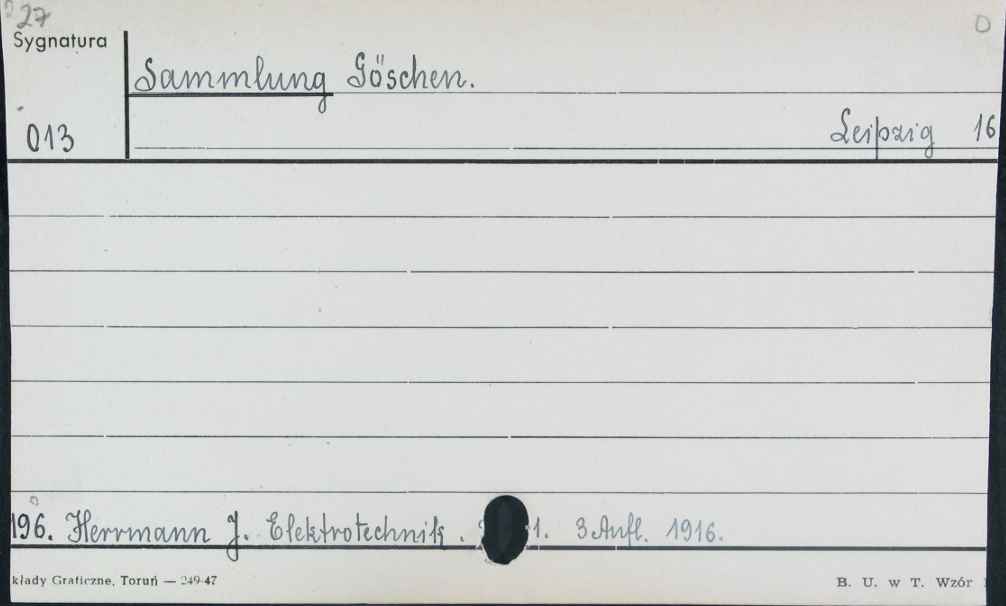 27
Sygnatura
Sammlung Göschen.
013
Leipzig 16
196. Herrmann J. Elektrotechnik. 1. 3 Aufl. 1916.
kłady Graficzne, Toruń — 249-47
B. U. w T. Wzór